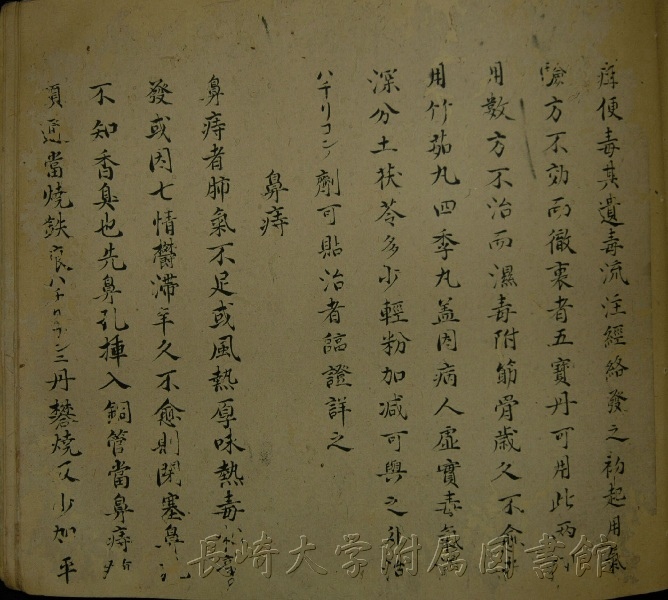 痺便毒其遺毒流注經絡發之初起用
驗方不効而徹裏者五寳丹可用此
用數方不治而濕毒附筋骨歳久不愈
用竹茹丸四季丸蓋因病人虚實毒氣
深分土茯苓多少輕粉加减可與之外治
ハチリコン劑可貼治者臨證詳之
鼻痔
鼻痔者肺氣不足或風熱厚味熱毒
發或因七情欝滞年久不愈則閉塞鼻
不知香臭也先鼻孔挿入銅管當鼻痔
當燒鉄 ハチリコン三丹礬燒 少加平
長崎大学附属図書館